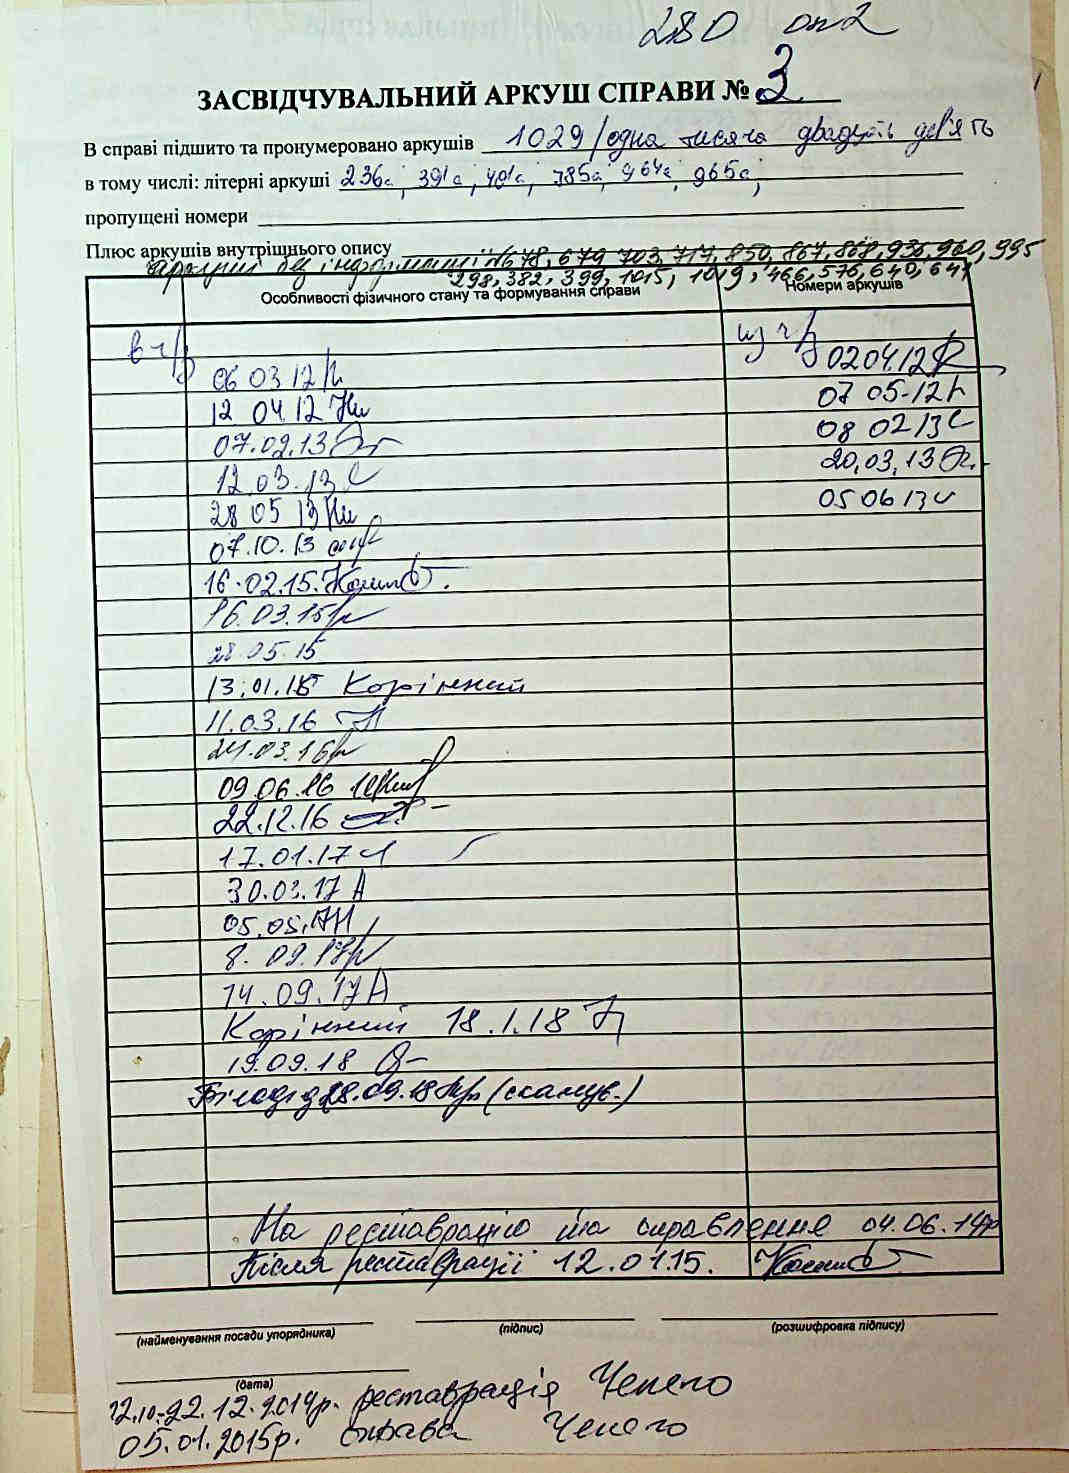 280 оп 2
ЗАСВІДЧУВАЛЬНИЙ АРКУШ СПРАВИ № 3
В справі підшито та пронумеровано аркушів 1029 /одна тисяча двадцять дев'ять
в тому числі: літерні аркуші 236а, 391а, 401а, 785а, 964а, 965а,
пропущені номери
Плюс аркушів внутрішнього опису
аркуші без інформації №678, 679, 703, 717, 850, 867, 868, 936, 960, 995
298, 382, 399, 1015, 1019, 466, 576, 640, 641
Особливості фізичного стану та формування справи Номери аркушів
в ч/з из ч/з
06 03 12 02 04.12
12 04 12 07 05-12
07.02.13 08 02 13
12.03.13 20.03.13
28 05 13 05 06 13
07.10.13
16.02.15.
16.03.15
28.05.15
13.01.16 Корінний
11.03.16
24.03.16
09.06.16
22.12.16
17.01.17
30.03.17
05.05.17
8.09.17
14.09.17
Корінний 18.1.18
19.09.18
Білодід 28.09.18 (сканув.)
На реставрацію та оправлення 04.06.14р
Після реставрації 12.01.15.
(найменування посади упорядника) (підпис) (розшифровка підпису)
(дата)
12.10-22.12.2014р. реставрація Чепего
05.01.2015р. оправа Чепего